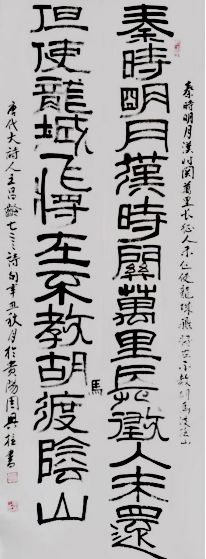 秦時明月漢时関萬里长征人未还但使龍城飛將在不教胡馬渡陰山
秦時明月漢時關萬里長徵人未還
但使龍城飛將在不教胡馬渡陰山
唐代大詩人王昌齡七言詩句辛丑秋月於貴陽周興柱書